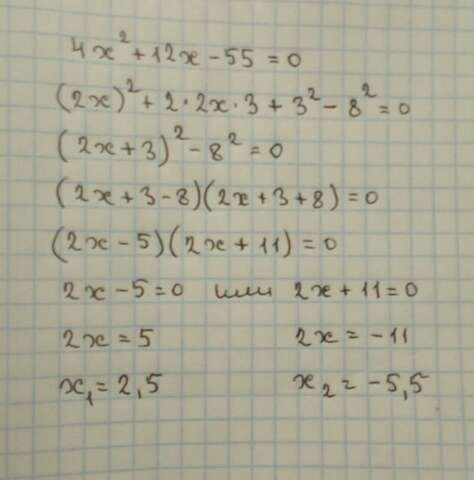 4x² + 12x - 55 = 0
(2x)² + 2 · 2x · 3 + 3² - 8² = 0
(2x + 3)² - 8² = 0
(2x + 3 - 8)(2x + 3 + 8) = 0
(2x - 5)(2x + 11) = 0
2x - 5 = 0 или 2x + 11 = 0
2x = 5 2x = -11
x₁ = 2,5 x₂ = -5,5